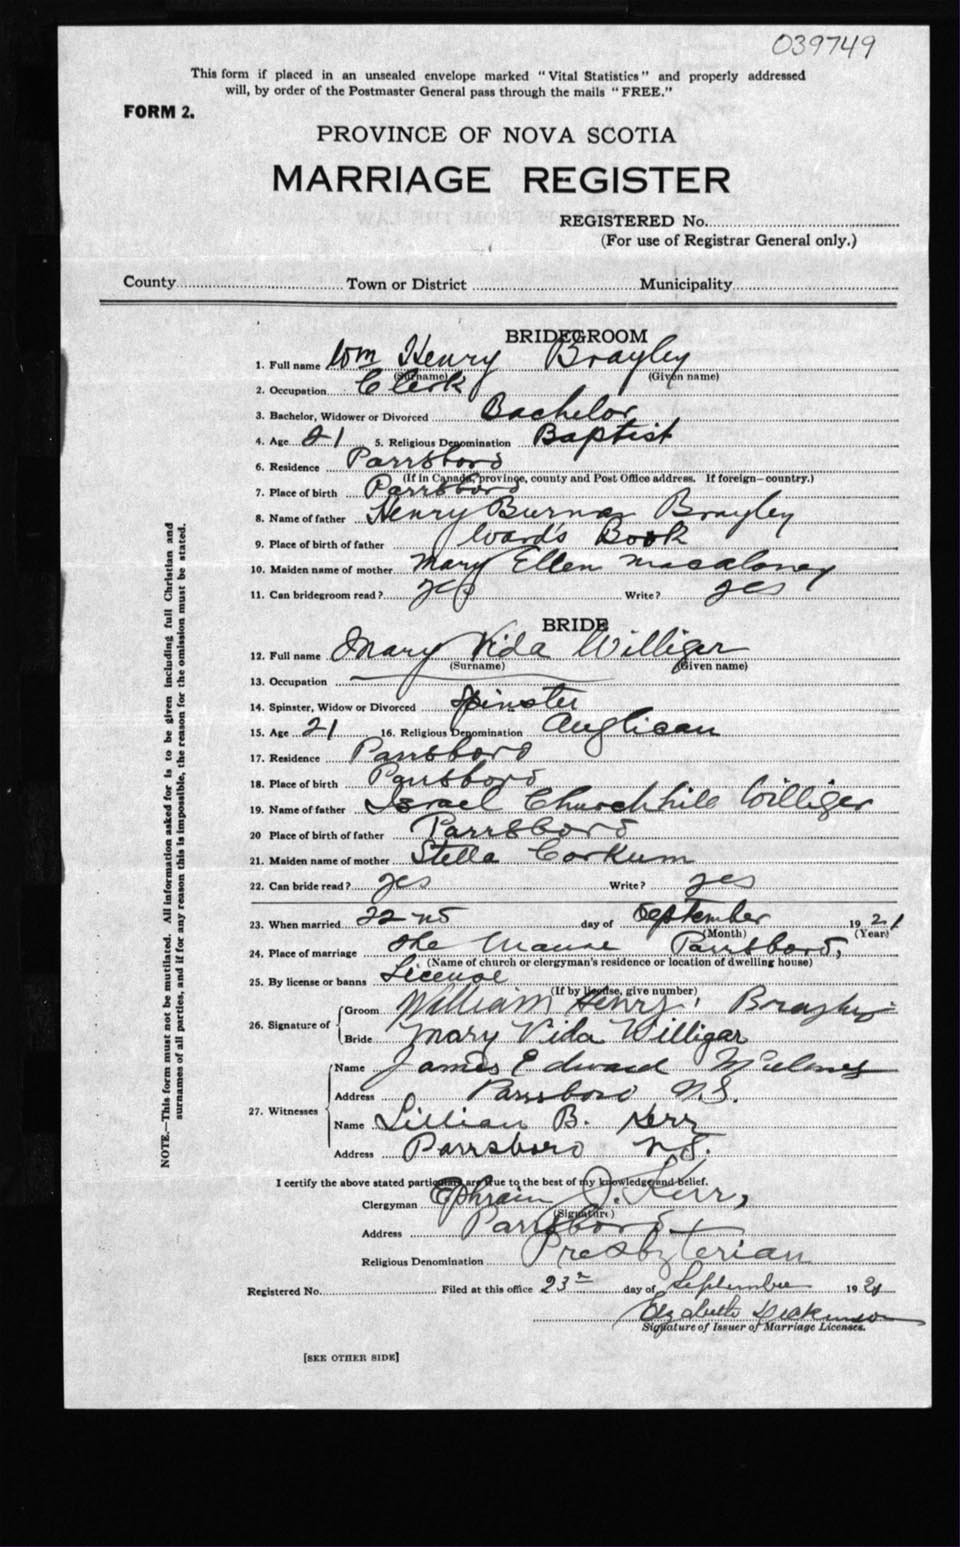 039749
This form if placed in an unsealed envelope marked "Vital Statistics" and properly addressed
will, by order of the Postmaster General pass through the mails "FREE."
FORM 2.
PROVINCE OF NOVA SCOTIA
MARRIAGE REGISTER
REGISTERED No.
(For use of Registrar General only.)
County Town or District Municipality
BRIDEGROOM
1. Full name Wm Henry Brayley
(Surname) (Given name)
2. Occupation Clerk
3. Bachelor, Widower or Divorced Bachelor
4. Age 21 5. Religious Denomination Baptist
6. Residence Parrsboro
(If in Canada, province, county and Post Office address. If foreign-country.)
7. Place of birth Parrsboro
8. Name of father Henry Brayley
9. Place of birth of father Ward's
10. Maiden name of mother Mary Ellen Macaloney
11. Can bridegroom read? yes Write? yes
BRIDE
12. Full name Mary Vida Willigar
(Surname) (Given name)
13. Occupation
14. Spinster, Widow or Divorced Spinster
15. Age 21 16. Religious Denomination Anglican
17. Residence Parrsboro
18. Place of birth Parrsboro
19. Name of father Israel Churchhill Willigar
20 Place of birth of father Parrsboro
21. Maiden name of mother Stella Corkum
22. Can bride read? yes Write? yes
23. When married 22nd day of September 1921
(Month) (Year)
24. Place of marriage The Manse Parrsboro,
(Name of church or clergyman's residence or location of dwelling house)
25. By license or banns License
(If by license, give number)
26. Signature of Groom William Henry Brayley
Bride Mary Vida Willigar
27. Witnesses Name James Edward
Address Parrsboro N.S.
Name Lillian B. Kerr
Address Parrsboro N.S.
I certify the above stated particulars are true to the best of my knowledge and belief.
Clergyman Ephraim J. Kerr,
(Signature)
Address Parrsboro
Religious Denomination Presbyterian
Registered No. Filed at this office 23 day of September 1921
Elizabeth
Signature of Issuer of Marriage Licenses.
[SEE OTHER SIDE]
NOTE.—This form must not be mutilated. All information asked for is to be given including full Christian and
surnames of all parties, and if for any reason this is impossible, the reason for the omission must be stated.